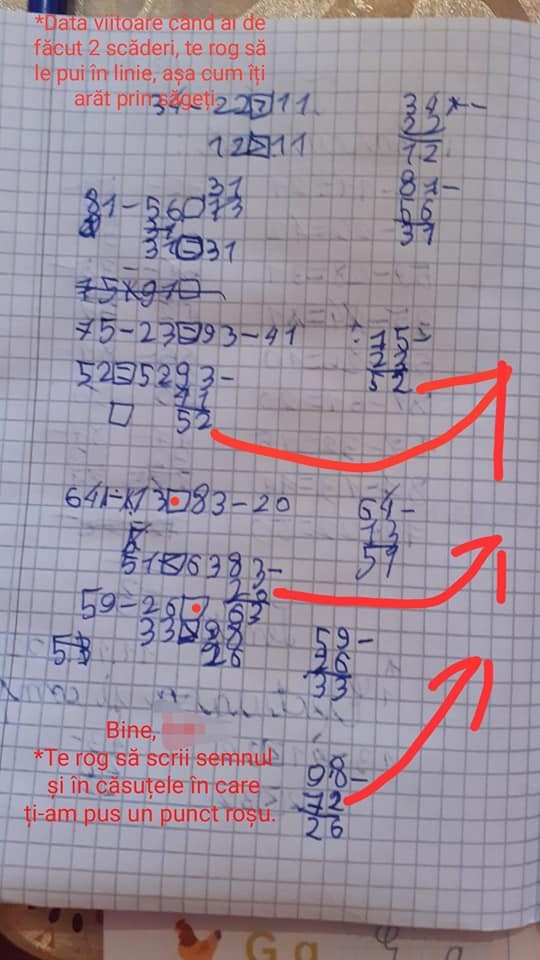 *Data viitoare când ai de
făcut 2 scăderi, te rog să
le pui în linie, așa cum îți
arăt prin săgeți.
34-22>11
12>11
34-
22
12
81-
56
31
31
81-56 73
31
31=31
75-23=93-41
52=52 93-
41
52
75-
23
52
64-13 83-20
64-
13
51
51<63 83-
20
63
59-26
33>98
26
59-
26
33
53
98-
72
26
Bine,
*Te rog să scrii semnul
și în căsuțele în care
ți-am pus un punct roșu.
G g